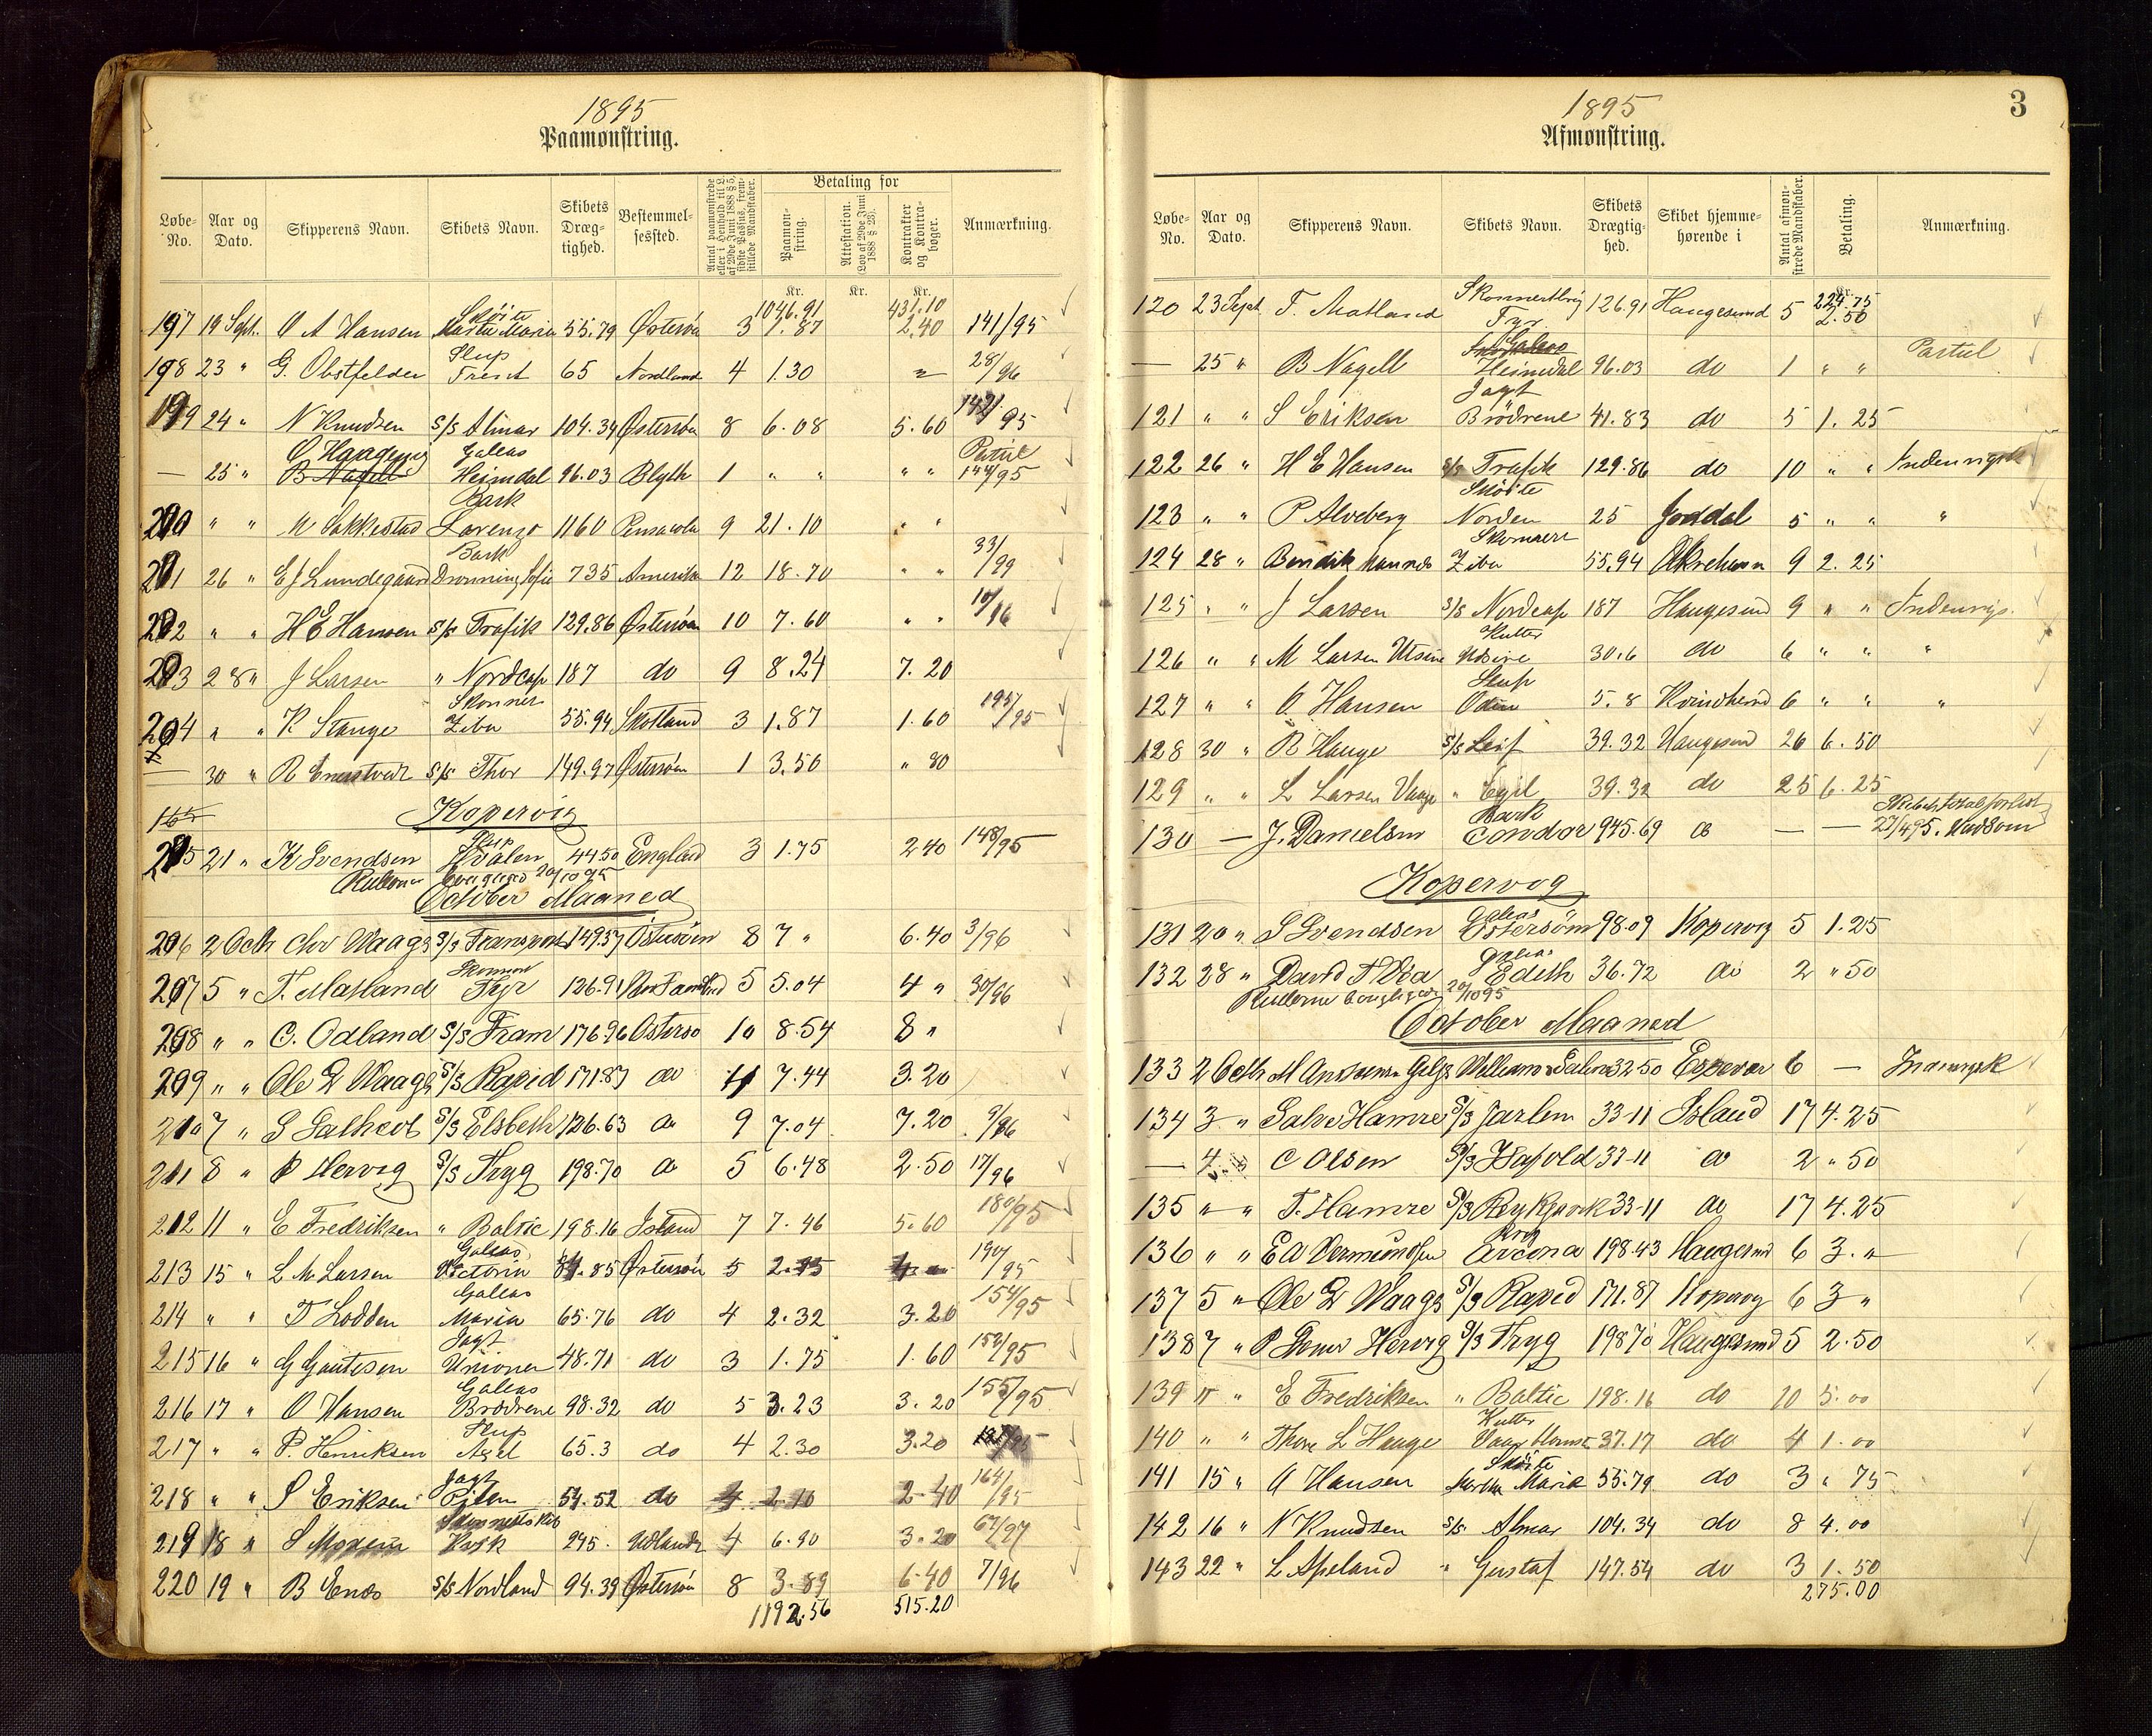 1895
Paamønstring.
Løbe-No. Aar og Dato. Skipperens Navn. Skibets Navn. Skibets Dræg-tighed. Bestemmel-sessted. Antal paamønstrede eller i Henhold til L. af 29de Juni 1888 § 5, sidste Passus, frem-stillede Mandskaber. Betaling for Paamøn-string. Attestation. (Lov af 29de Juni 1888 § 23). Kontrakter og Kontra-bøger. Anmærkning.
Kr. Kr. Kr.
1046.91 431.10
197 19 Sept. O A Hansen Skøite Martha Maria 55.79 Østersøn 3 1.87 2.40 141/95
198 23 " G. Obstfelder Slup 65 Nordland 4 1.30 " 28/96
199 24 " N Knudsen S/S Almar 104.34 Østersøn 8 6.08 5.60 95
— 25 " B Nagell Galeas Heimdal 96.03 Blyth 1 " " " " Partiel 144/95
200 " " M Sakkestad Bark Lorenzo 1160 Pensacola 9 21.10 " "
201 26 " E J Lundegaard Bark Dronning Sofie 735 Amerika 12 18.70 " " 33/99
202 " " H E Hansen S/S Trafik 129.86 Østersøen 10 7.60 " "
203 28 " J Larsen " Nordcap 187 do 9 8.24 7.20
204 " " K Stange Skonner Ziba 55.94 Skotland 3 1.87 1.60 /95
— 30 " R Enerstvedt S/S Thor 149.97 Østersøen 1 3.50 " 80
Kopervig
205 21 " K Svendsen Slup Hvalen 44.50 England 3 1.75 2 40 148/95
Rullerne 20/10 95
October Maaned
206 2 Octb Chr Waage S/S Transport 149.57 Østersøen 8 7 " 6.40 3/96
207 5 " T. Matland Skonner Tyr 126.91 5 5.04 4 " 30/96
208 " " C. Odland S/S Fram 176.96 Østersø 10 8.54 8 "
209 " " Ole D Waage S/S Rapid 171.87 do 4 7.44 3.20
210 7 " S S/S Elsbeth 136.63 do 9 7.04 7.20 9/96
211 8 " P Hervig S/S Tryg 198.70 do 5 6.48 2.50 17/96
212 11 " E Fredriksen " Baltic 198.16 Island 7 7.46 5.60 180/95
213 15 " L M Larsen Galeas Victoria 81.85 Østersøn 5 190/95
214 " " T Lodden Galeas Maria 65.76 do 4 2.32 3.20 154/95
215 16 " G Gautesen Jagt Unionen 48.71 do 3 1.75 1.60 152/95
216 17 " O Hansen Galeas Brødrene 98.32 do 5 3.23 3.20 155/95
217 " " P. Henriksen Slup Axel 65.3 do 4 2.30 3.20
218 " " S Eriksen Jagt Pilen 54.52 do 4 2.10 2.40 164/95
219 18 " S Skonnertskib 295. Udlandet 4 6.90 3.20 67/97
220 19 " B Enæs S/S Nordland 94.39 Østersøn 8 3.89 6.40 7/96
1192.56 515.20
1895
Afmønstring.
3
Løbe-No. Aar og Dato. Skipperens Navn. Skibets Navn. Skibets Drægtig-hed. Skibet hjemme-hørende i Antal afmøn-strede Mandskaber. Betaling. Anmærkning.
224.75
120 23 Sept T. Matland Skonnertbrig Tyr 126.91 Haugesund 5 2.50
— 25 " B Nagell Galeas Heimdal 96.03 do 1 " " Partiel
121 " " S Eriksen Jagt Brødrene 41.83 do 5 1.25
122 26 " H E Hansen S/S Trafik 129.86 do 10 " " Indenrigsk
123 " " P Alveberg Skøite Norden 25 Joddal 5 " " "
124 28 " Bendik Skonnert Ziba 55.94 Akrehavn 9 2.25
125 " " J Larsen S/S Nordcap 187 Haugesund 9 " " Indenrigs.
126 " " M Larsen Utsire Kutter Utsire 30.6 do 6 " " "
127 " " O Hansen Slup Odin 5.8 6 " " "
128 30 " R Hauge S/S Leif 39.32 Haugesund 26 6.50
129 " " L Larsen Vaage " Egil 39.32 do 25 6.25
130 — J. Danielsen Bark Condor 945.69 do — — Skibet totalforlist 27/4 95.
Kopervig
131 20 " S Svendsen Galeas Østersøen 98.09 Kopervig 5 1.25
132 28 " David T Vea Galeas Edith 36.72 do 2 " 50
Rullerne 20/10 95
October Maaned
133 2 Octb M 32.50 Espevær 6 — Indenrigsk
134 3 " Salve Hamre S/S Jarlen 33-11 Island 17 4.25
— 4 " C Olsen S/S 33-11 do 2 " 50
135 " " T. Hamre S/S Reykjavik 33-11 do 17 4.25
136 " " E A Brig Arcona 198.43 Haugesund 6 3. "
137 5 " Ole D Waage S/S Rapid 171.87 Kopervig 6 3 "
138 7 " P Hervig S/S Tryg 198 70 Haugesund 5 2.50
139 11 " E Fredriksen " Baltic 198.16 do 10 5.00
140 " " Thore L Hauge Kutter 37.17 do 4 1.00
141 15 " O Hansen Skøite Martha Maria 55.79 do 3 " 75
142 16 " N Knudsen S/S Almar 104.34 do 8 4.00
143 22 " L Apeland " Gustaf 147.54 do 3 1.50
275.00